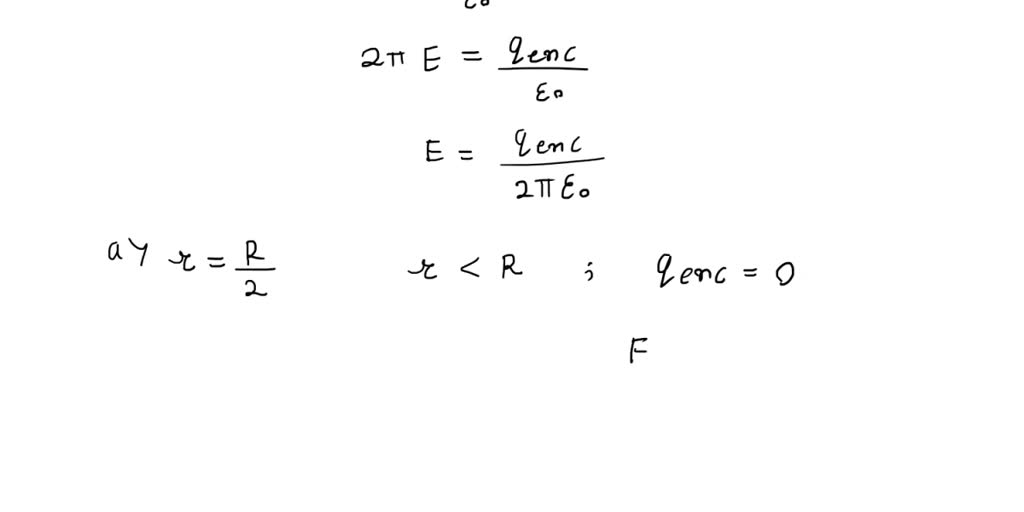 ε₀
2π E = qenc / ε₀
E = qenc / 2π ε₀
a) r = R/2 r < R ; qenc = 0
F